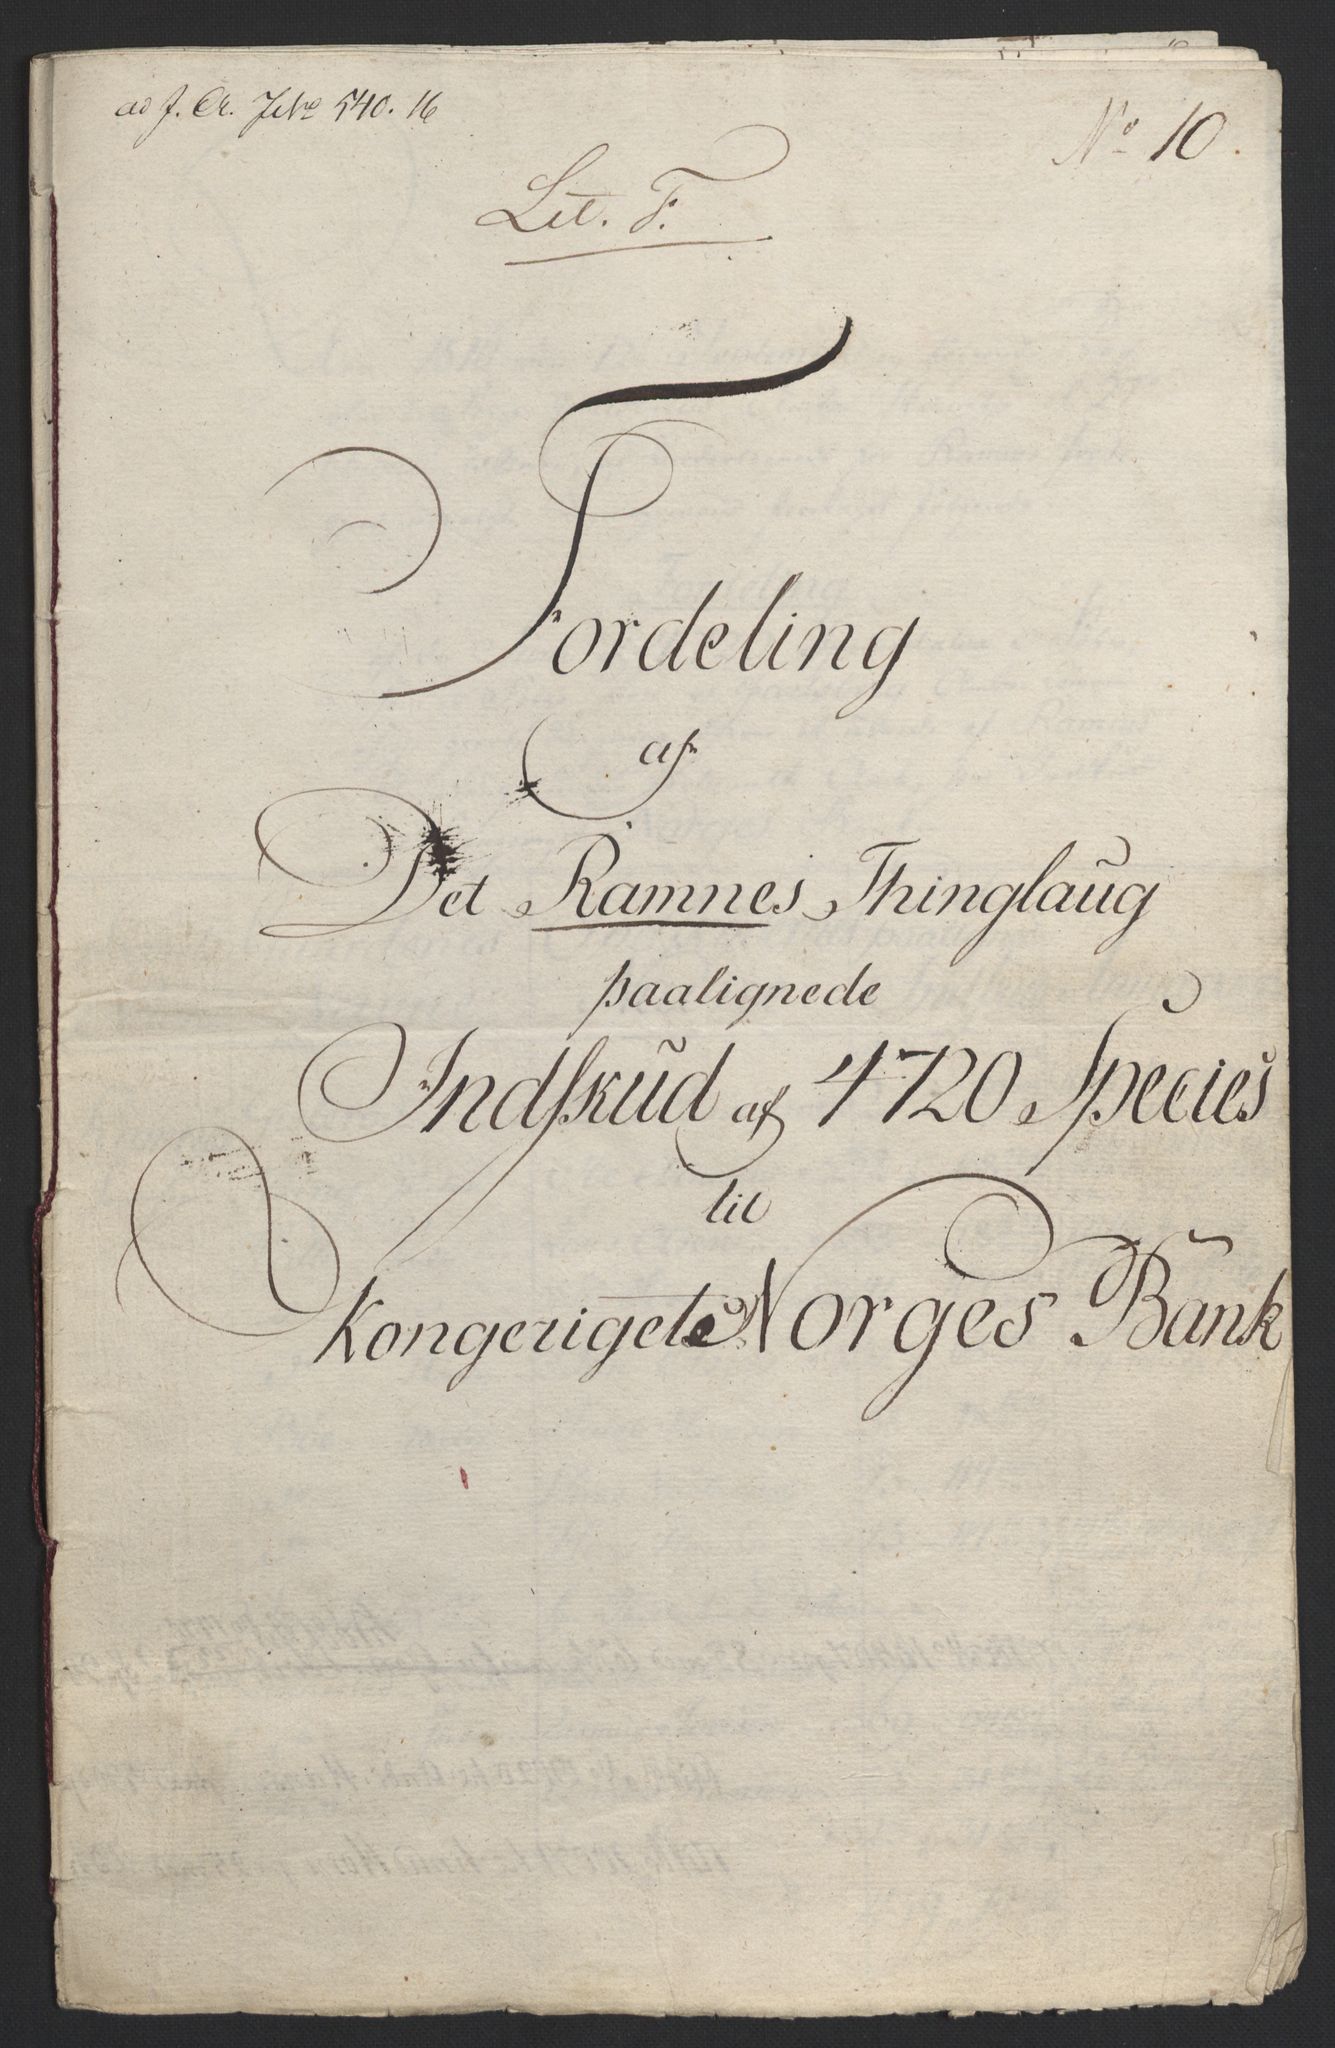 ad J. Cr. J. No 540. 16
No 10.
Lit. F.
Fordeling
af
Det Ramnes Thinglaug
paalignede
Indskud af 4720 Species
til
Kongeriget Norges Bank